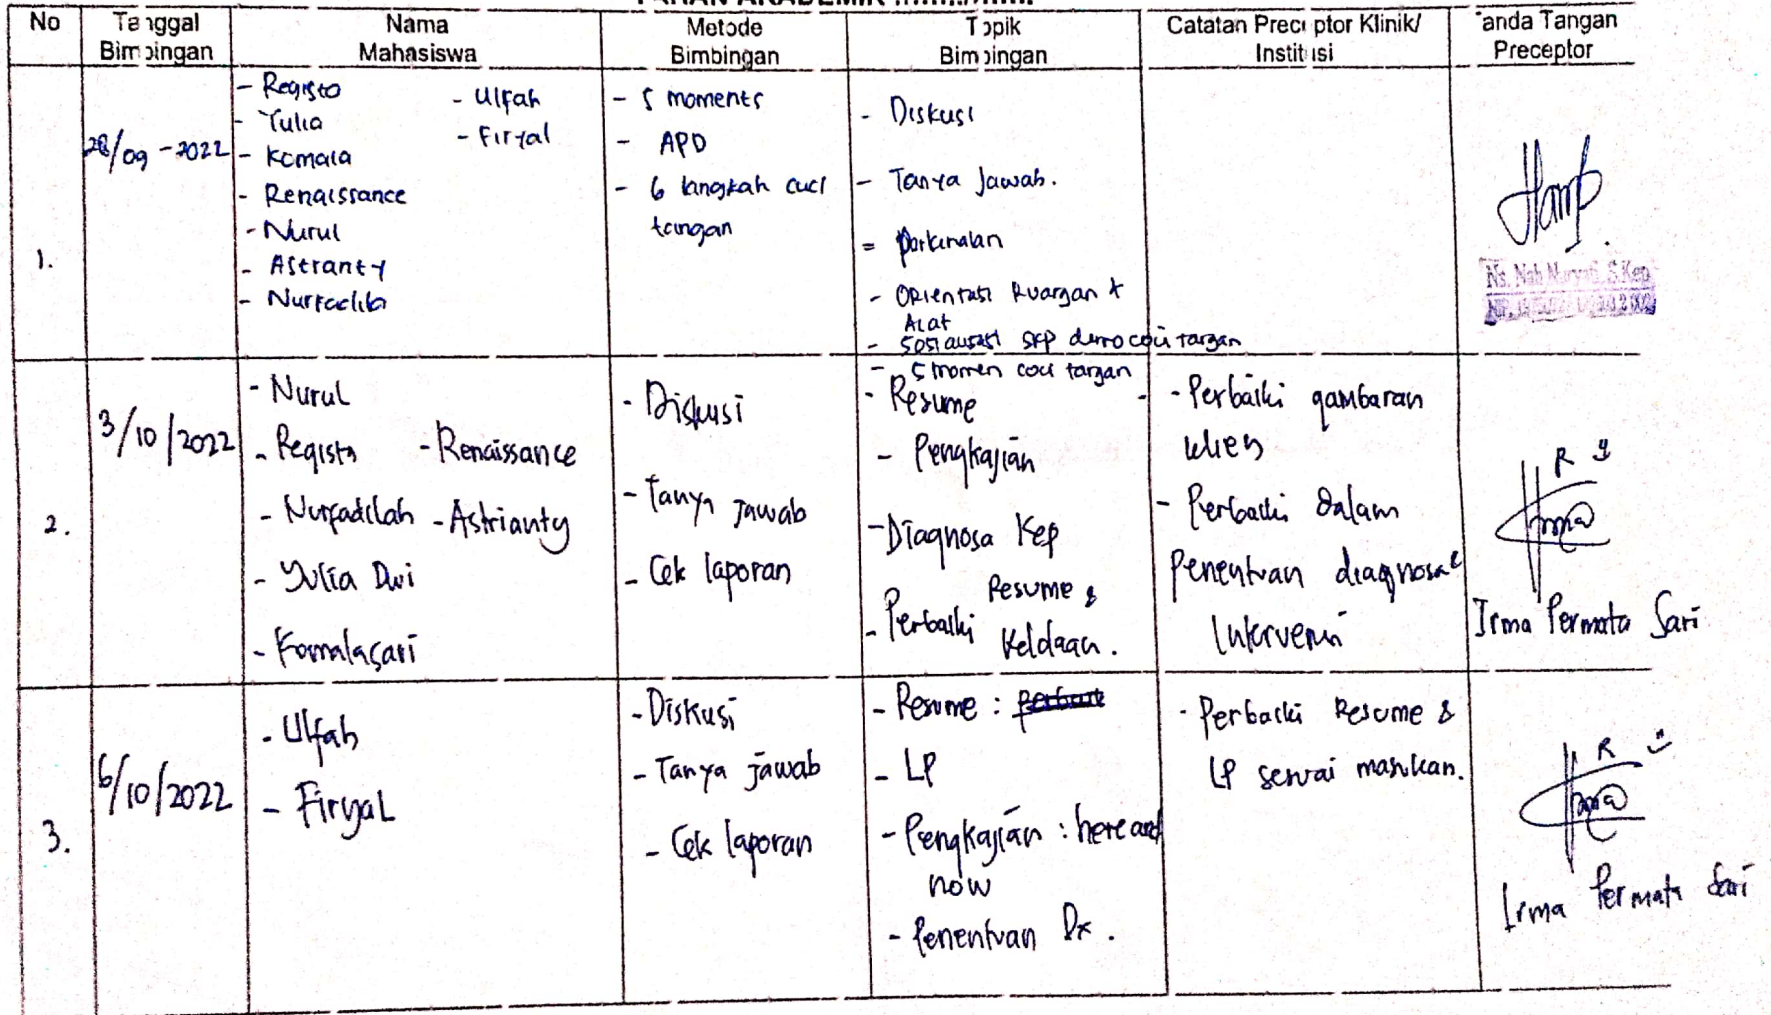 No
Tanggal
Bimbingan
Nama
Mahasiswa
Metode
Bimbingan
Topik
Bimbingan
Catatan Preceptor Klinik/
Institusi
Tanda Tangan
Preceptor
1.
28/09-2022
- Registo
- Yulia
- Komala
- Renaissance
- Nurul
- Astranty
- Nurfadila
- Ulfah
- Firyal
- 5 moments
- APD
- 6 langkah cuci
tangan
- Diskusi
- Tanya Jawab.
- Perkenalan
- Orientasi Ruangan &
Alat
- Sosialisasi demo cuci tangan
- 5 momen cuci tangan
2.
3/10/2022
- Nurul
- Regista
- Nurfadilah
- Yulia Dwi
- Komalasari
- Renaissance
- Astrianty
- Diskusi
- Tanya Jawab
- Cek laporan
- Resume
- Pengkajian
- Diagnosa Kep
- Perbaiki Resume &
Keldaan.
- Perbaiki gambaran
klien
- Perbaiki dalam
penentuan diagnosa &
Intervensi
Irma Permata Sari
3.
6/10/2022
- Ulfah
- Firyal
- Diskusi
- Tanya jawab
- Cek laporan
- Resume :
- LP
- Pengkajian : here and
now
- Penentuan Dx.
- Perbaiki Resume &
LP sesuai masukan.
Irma Permata Sari